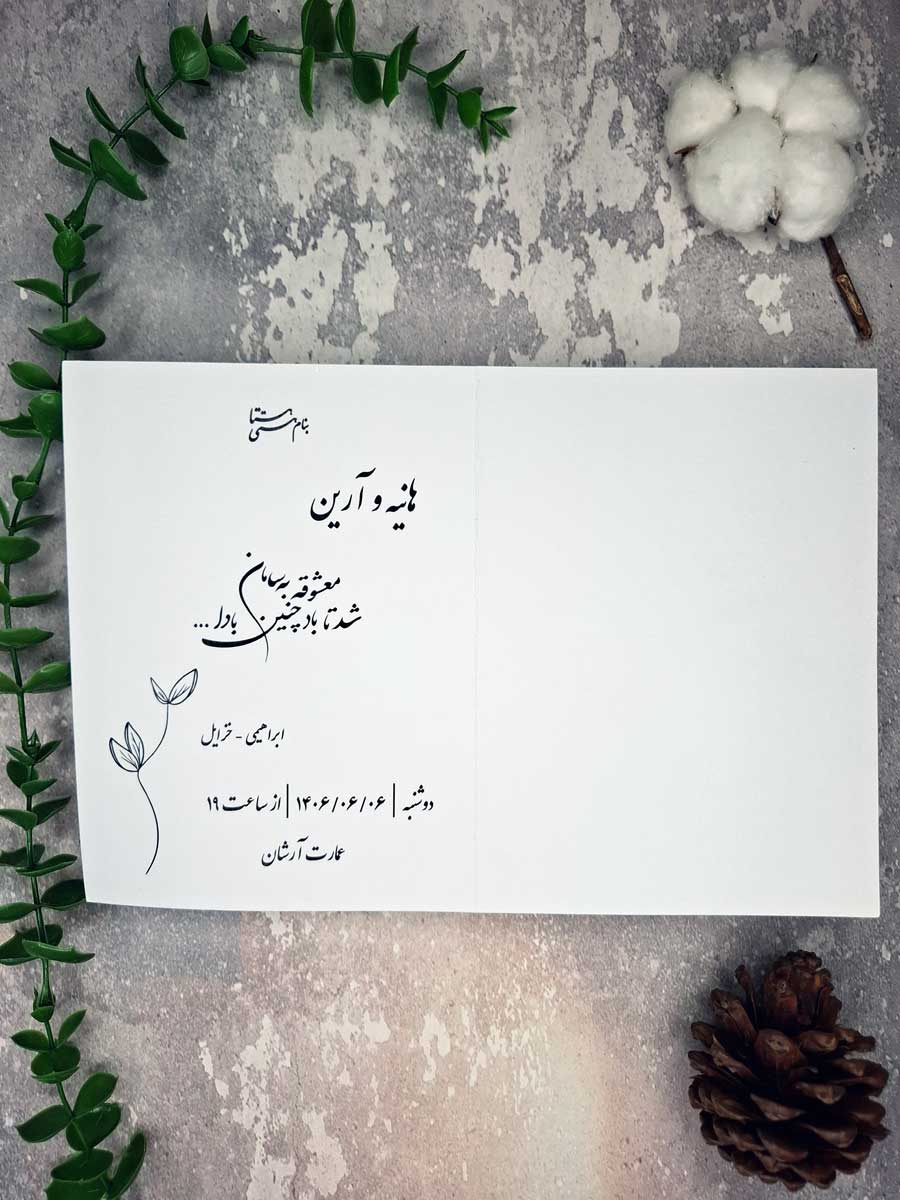 بنام هستی هستا
هانیه و آرین
معشوقه به سامان
شد تا باد چنین بادا ...
ابراهیمی - خزایل
دوشنبه | ۱۴۰۶/۰۶/۰۶ | از ساعت ۱۹
عمارت آرشان